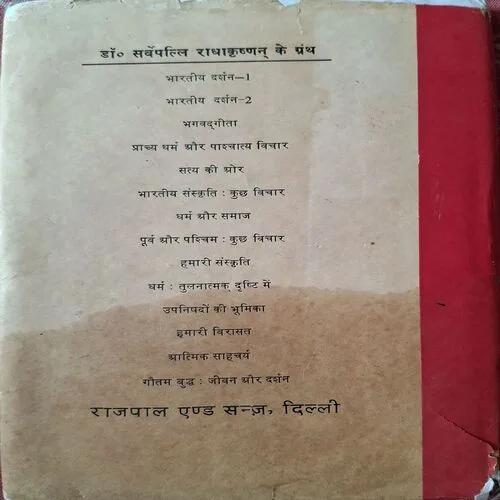 डॉ० सर्वेपल्लि राधाकृष्णन् के ग्रंथ
भारतीय दर्शन–1
भारतीय दर्शन–2
भगवद्‌गीता
प्राच्य धर्म और पाश्चात्य विचार
सत्य की ओर
भारतीय संस्कृति : कुछ विचार
धर्म और समाज
पूर्व और पश्चिम : कुछ विचार
हमारी संस्कृति
धर्म : तुलनात्मक दृष्टि में
उपनिषदों की भूमिका
हमारी विरासत
आत्मिक साहचर्य
गौतम बुद्ध : जीवन और दर्शन
राजपाल एण्ड सन्ज़, दिल्ली